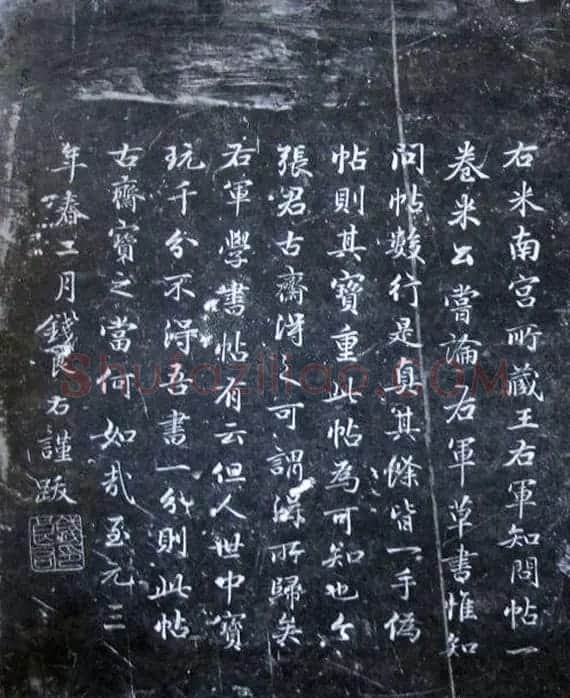 右米南宮所藏王右軍知問帖一
卷米公嘗論右軍草書惟知
問帖數行是真其條皆一手偽
帖則其寶重此帖為可知也今
張君古齋得之可謂得所歸矣
右軍學書帖有云但人世中寶
玩千分不得吾書一分則此帖
古齋寶之當何如哉至元三
年春二月錢良右謹跋
Shufaziliao.COM